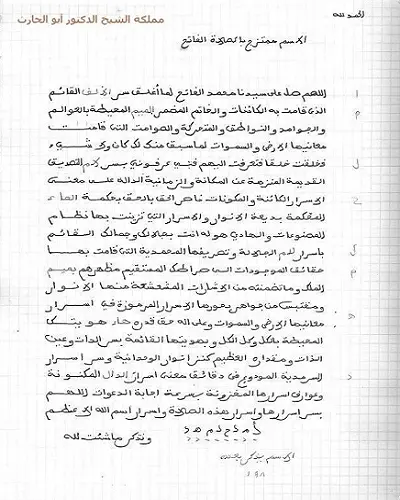 مملكة الشيخ الدكتور أبو الحارث
الحمد لله
الاسم ممتزج بالصلاة الفاتح
اللهم صل على سيدنا محمد الفاتح لما أغلق سر الألف القائم
الذي قامت به الكائنات والخاتم المضمر الميم المحيطة بالعوالم
والجوامد والنواطق والمتحركة والصوامت التي قامت
معانيها الأرض والسموات لما سبق منك لكان ولا شيء
فخلقت خلقا فتعرفت اليهم فبي عرفوني بسر لام التصديق
القديمة المنزهة عن المكانة والزمانية الدالة على معنى
الأسرار الكائنة والمكونات ناصر الحق بالحق بحكمة الحاء
المحكمة بديعة الأنوار والأسرار التي تزينت بها نظام
المصنوعات والهادي هو له انت بجلالك وجمالك القائم
بأسرار لام الجلالة وتصريفها المحمدية التي قامت بها
حقائق الموجودات الى صراطك المستقيم مظهرهم بميم
الملك وما تضمنته من الإشارات المشعشعة منها الأنوار
ومقتبس من جواهر بحورها الأسرار المرموزة في أسرار
معانيها الأرض والسموات وعلى اله حق قدره هاء هويتك
المحيطة بالكل وكل الكل وبهويتها القائمة بسر الذات وعين
الذات ومقداره العظيم كنز انوار الوحدانية وسر اسرار
السرمدية المودوع في دقائق معنى أسرار الدال المكنونة
وعوارف اسرارها المخزونة بسرعة إجابة الدعوات اللهم
بسر اسرارها وأسرار هذه الصلاة وأسرار اسم الله الأعظم
وتذكر ما شئت لله